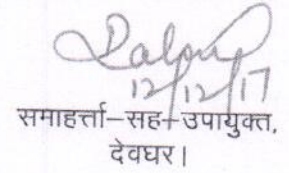 12/12/17
समाहर्त्ता-सह-उपायुक्त,
देवघर।